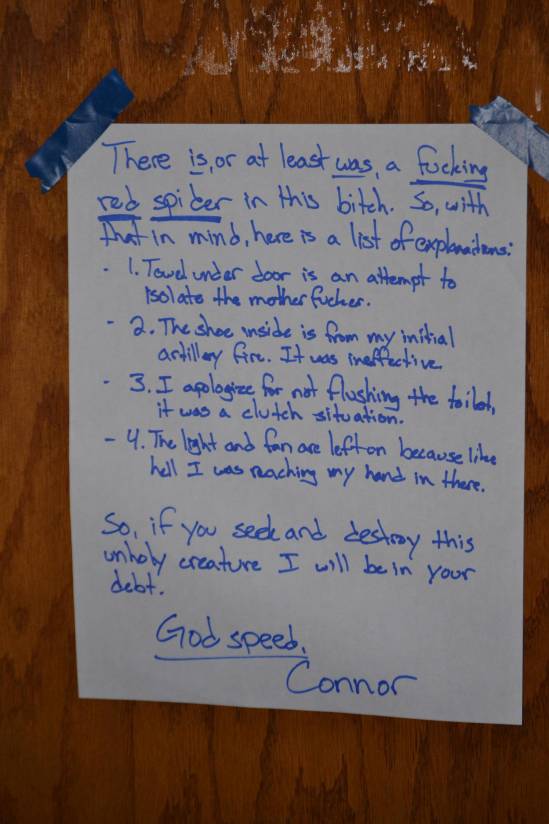 There is, or at least was, a fucking
red spider in this bitch. So, with
that in mind, here is a list of explanations:
- 1. Towel under door is an attempt to
isolate the mother fucker.
- 2. The shoe inside is from my initial
artillery fire. It was ineffective.
- 3. I apologize for not flushing the toilet,
it was a clutch situation.
- 4. The light and fan are left on because like
hell I was reaching my hand in there.
So, if you seek and destroy this
unholy creature I will be in your
debt.
God speed,
Connor